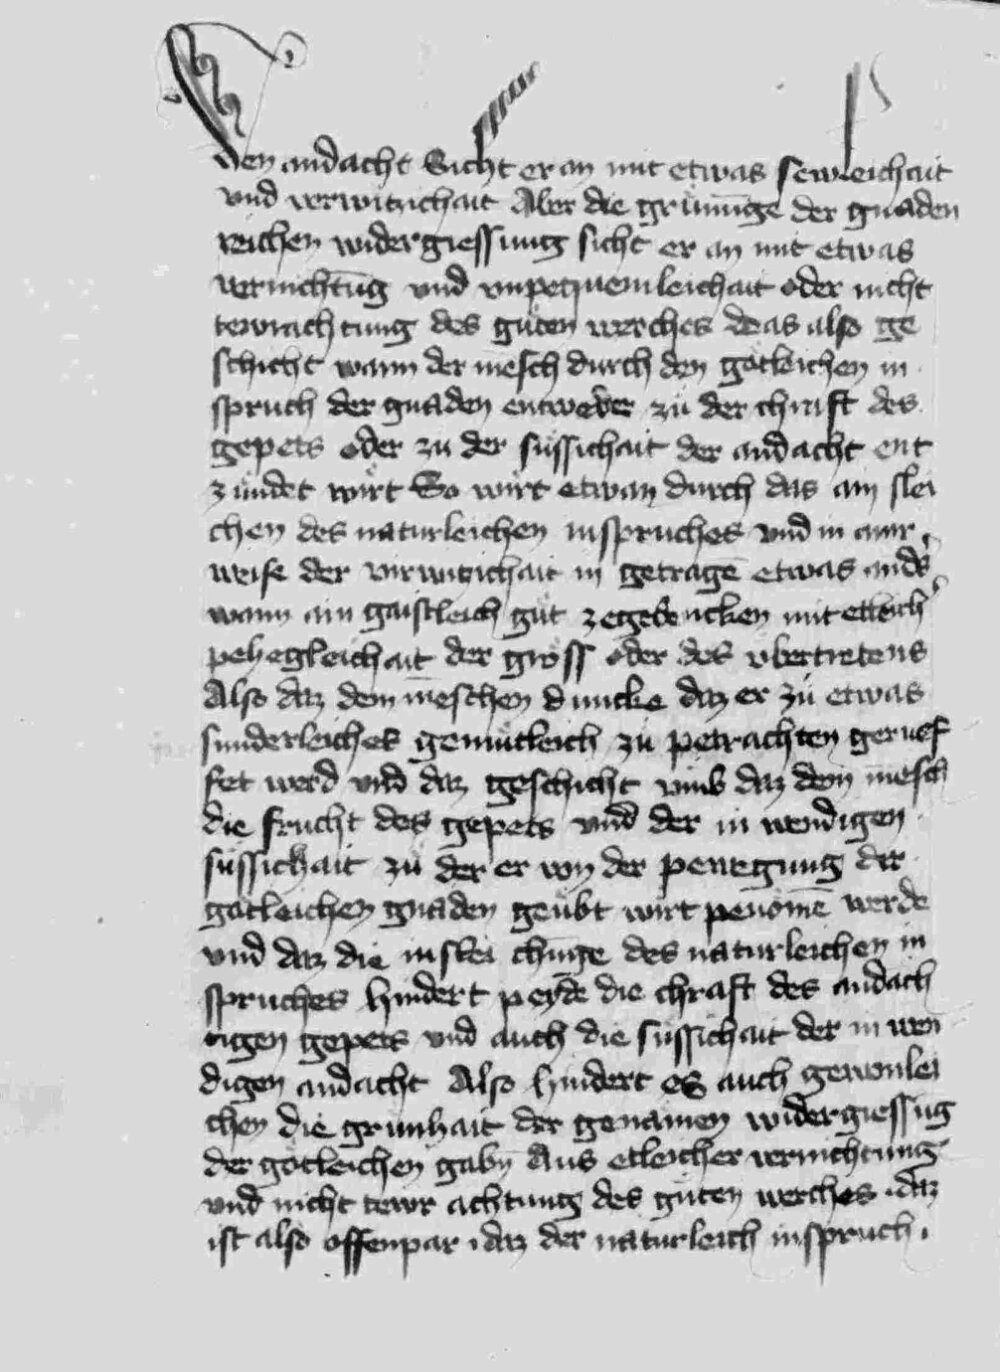 den andacht Sicht er an mit etwas sewleichait
vnd verwitzichait Aber die grünu̅ge der gnaden
reichen widergiessung sicht er an mit etwas
vernichtu̅g vnd vnpequemleichait oder nicht
tewrachtung des gůten werches deas also ge
schicht wann der me̅sch durch den gotleichen in
spruch der gnaden entweder zů der chraft des
gepets oder zu der süssichait der andacht ent
zündet wirt So wirt etwan durch das ain slei
chen des naturleichen inspruches vnd in ainr
weise der virwitzichait in getrage̅ etwas anders
wann ain gaistleich gůt zegedencken mit etleicher
pehegleichait der gröss oder des vbertretens
Also daz dem me̅schen duncke daz er zů etwas
sunderleiches gemütleich zů petrachten geruef
fet werd vnd daz geschicht vmb daz dem me̅sch
die frucht des gepets vnd der in wendigen
süssichait zů der er von der pewegung der
gotleichen gnaden geübt wirt peno̅me̅ werde
vnd daz die inslei chu̅ge des naturleichen in
spruches hindert peyde die chraft des andach
tigen gepets vnd auch die süssichait der in wen
digen andacht Also hindert es auch gewonlei
chen die grünhait der genämen widergiessu̅g
der gotleichen gabn̅ Aus etleicher vernichtung
vnd nicht tewr achtung des gůten werches .daz
ist also offenpar .daz der naturleich inspruch .